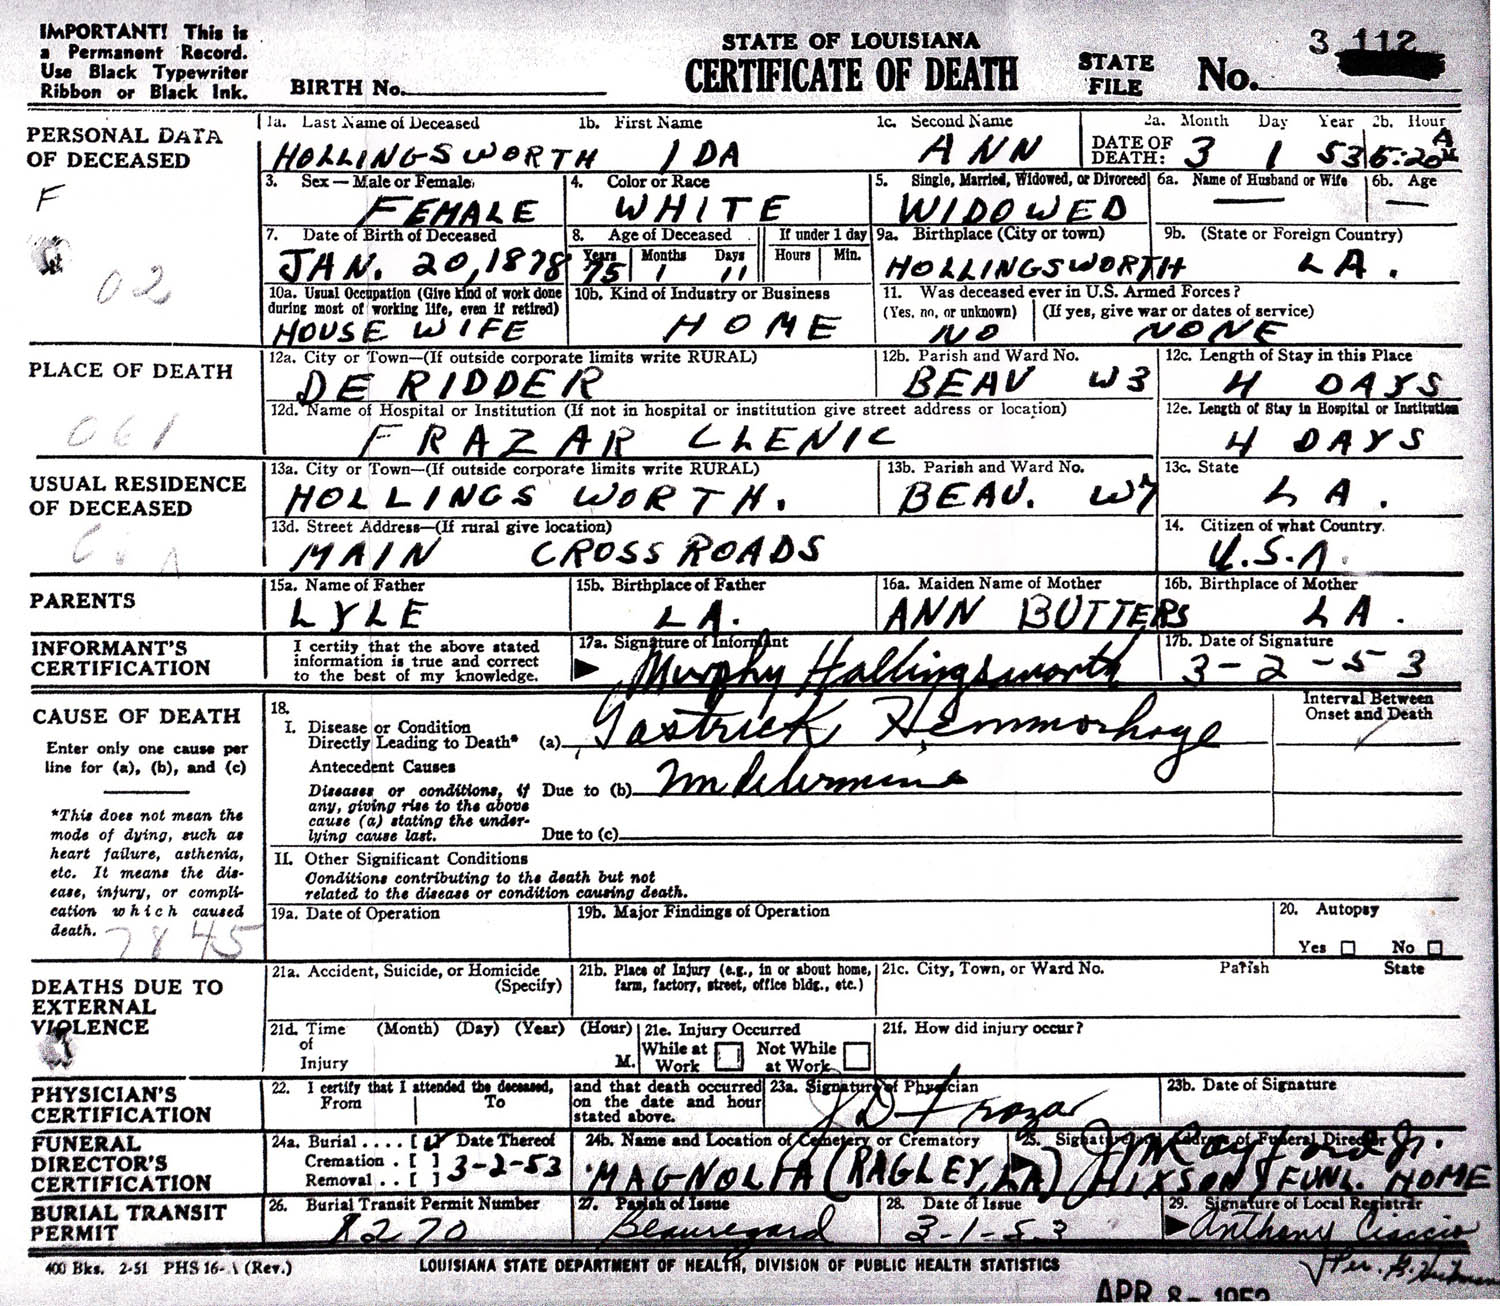 IMPORTANT! This is
a Permanent Record.
Use Black Typewriter
Ribbon or Black Ink.
BIRTH No.
STATE OF LOUISIANA
CERTIFICATE OF DEATH
STATE FILE No. 3 112
PERSONAL DATA OF DECEASED
F
02
1a. Last Name of Deceased 1b. First Name 1c. Second Name 2a. Month Day Year 2b. Hour
HOLLINGSWORTH IDA ANN DATE OF DEATH: 3 1 53 5:20 A M
3. Sex — Male or Female 4. Color or Race 5. Single, Married, Widowed, or Divorced 6a. Name of Husband or Wife 6b. Age
FEMALE WHITE WIDOWED — —
7. Date of Birth of Deceased 8. Age of Deceased If under 1 day 9a. Birthplace (City or town) 9b. (State or Foreign Country)
Years Months Days Hours Min.
JAN. 20, 1878 75 1 11 HOLLINGSWORTH LA.
10a. Usual Occupation (Give kind of work done during most of working life, even if retired) 10b. Kind of Industry or Business 11. Was deceased ever in U.S. Armed Forces?
(Yes, no, or unknown) (If yes, give war or dates of service)
HOUSE WIFE HOME NO NONE
PLACE OF DEATH
061
12a. City or Town—(If outside corporate limits write RURAL) 12b. Parish and Ward No. 12c. Length of Stay in this Place
DE RIDDER BEAU W3 4 DAYS
12d. Name of Hospital or Institution (If not in hospital or institution give street address or location) 12e. Length of Stay in Hospital or Institution
FRAZAR CLENIC 4 DAYS
USUAL RESIDENCE OF DECEASED
13a. City or Town—(If outside corporate limits write RURAL) 13b. Parish and Ward No. 13c. State
HOLLINGS WORTH. BEAU. W7 LA.
13d. Street Address—(If rural give location) 14. Citizen of what Country.
MAIN CROSS ROADS U.S.A.
PARENTS
15a. Name of Father 15b. Birthplace of Father 16a. Maiden Name of Mother 16b. Birthplace of Mother
LYLE LA. ANN BUTTERS LA.
INFORMANT'S CERTIFICATION
I certify that the above stated information is true and correct to the best of my knowledge.
17a. Signature of Informant 17b. Date of Signature
Murphy Hollingsworth 3-2-53
CAUSE OF DEATH
Enter only one cause per line for (a), (b), and (c)
*This does not mean the mode of dying, such as heart failure, asthenia, etc. It means the disease, injury, or complication which caused death.
7845
18.
I. Disease or Condition Directly Leading to Death* (a) Gastrick Hemmorhage
Interval Between Onset and Death
Antecedent Causes
Diseases or conditions, if any, giving rise to the above cause (a) stating the underlying cause last.
Due to (b) undetermine
Due to (c)
II. Other Significant Conditions
Conditions contributing to the death but not related to the disease or condition causing death.
19a. Date of Operation 19b. Major Findings of Operation 20. Autopsy
Yes No
DEATHS DUE TO EXTERNAL VIOLENCE
21a. Accident, Suicide, or Homicide (Specify) 21b. Place of Injury (e.g., in or about home, farm, factory, street, office bldg., etc.) 21c. City, Town, or Ward No. Parish State
21d. Time of Injury (Month) (Day) (Year) (Hour) M. 21e. Injury Occurred While at Work Not While at Work 21f. How did injury occur?
PHYSICIAN'S CERTIFICATION
22. I certify that I attended the deceased, From To and that death occurred on the date and hour stated above. 23a. Signature of Physician 23b. Date of Signature
Frazar
FUNERAL DIRECTOR'S CERTIFICATION
24a. Burial .... [ ] Date Thereof 24b. Name and Location of Cemetery or Crematory 25. Signature and Address of Funeral Director
Cremation . [ ] 3-2-53
Removal .. [ ] MAGNOLIA (RAGLEY, LA) HIXSON FUNL. HOME
BURIAL TRANSIT PERMIT
26. Burial Transit Permit Number 27. Parish of Issue 28. Date of Issue 29. Signature of Local Registrar
8270 Beauregard 3-1-53 Anthony Ciaccio
Per.
400 Bks. 2-51 PHS 16-A (Rev.)
LOUISIANA STATE DEPARTMENT OF HEALTH, DIVISION OF PUBLIC HEALTH STATISTICS
APR 8- 1953